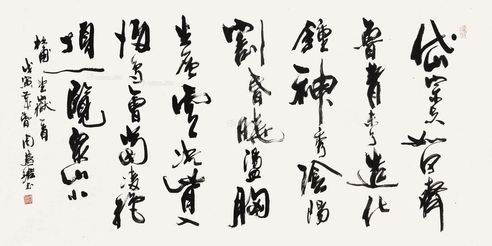 岱宗夫如何齊
魯青未了造化
鍾神秀陰陽
割昏曉盪胸
生層雲決眥入
歸鳥會當凌絕
頂一覽衆山小
杜甫望嶽一首
戊寅 周